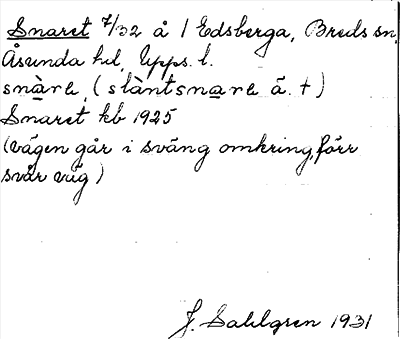 Snaret 7/32 å 1 Edsberga, Breds sn,
Åsunda hd, Upps. l.
snàrə, (slàntsnarə ä. +)
Snaret kb 1925
(vägen går i sväng omkring, förr
svår väg)
J. Sahlgren 1931